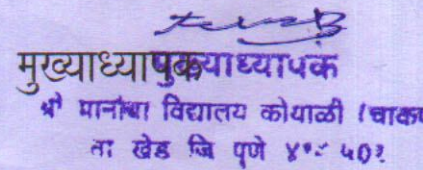 मुख्याध्यापक मुख्याध्यापक
श्री मानोबा विद्यालय कोयाळी (चाकण
ता खेड जि पुणे ४१०५०१